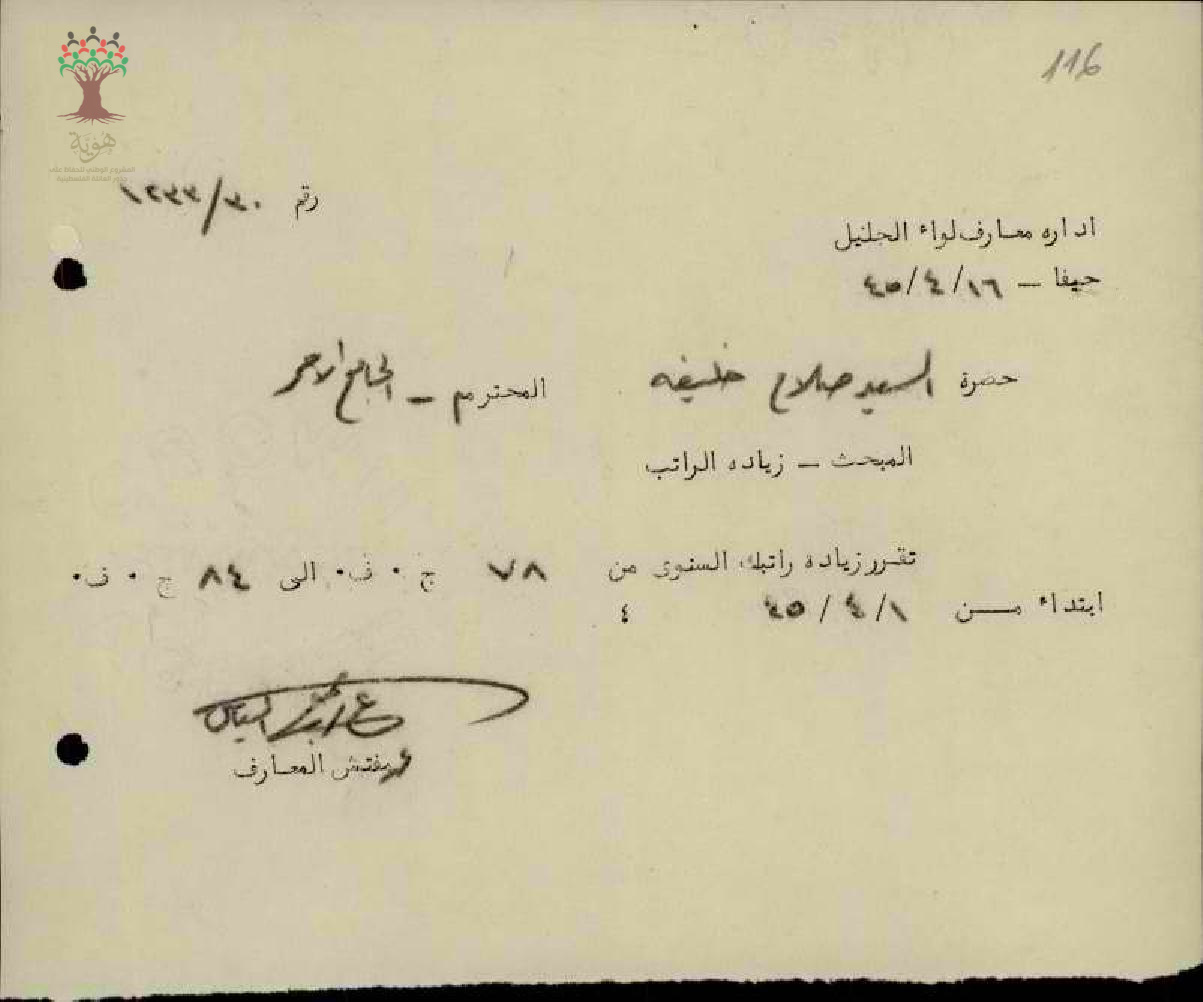 116
هُويّة
المشروع الوطني للحفاظ على
جذور العائلة الفلسطينية
رقم ٣٠/١٢٣٣
اداره معارف لواء الجليل
حيفا – ٤٥/٤/١٦
حضرة السيد صلاح خليفه المحترم – الجامع الاحمر
المبحث – زياده الراتب
تقرر زياده راتبك السنوى من ٧٨ ج ٠ ف٠ الى ٨٤ ج ٠ ف٠
ابتداء مــن ٤٥/٤/١ ٤
مفتش المعارف